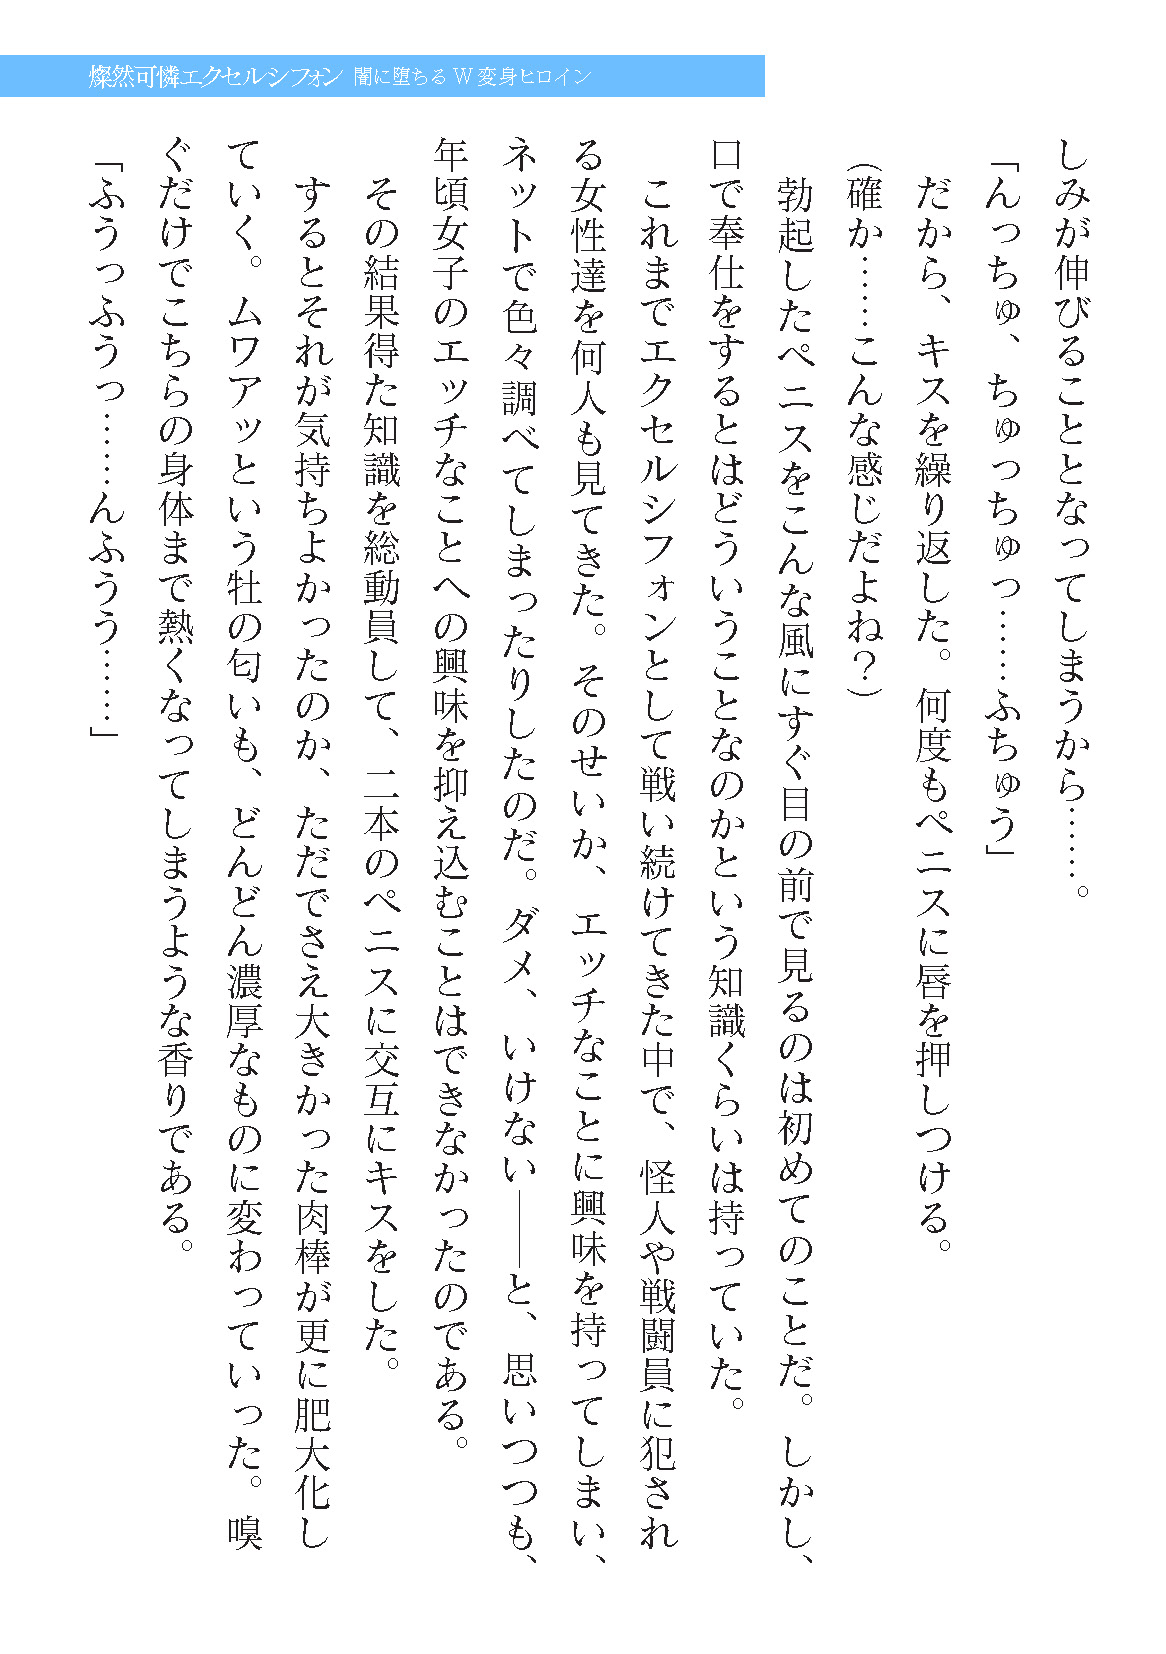 燦然可憐エクセルシフォン 闇に堕ちるW変身ヒロイン
しみが伸びることとなってしまうから……。
「んっちゅ、ちゅっちゅっ……ふちゅう」
だから、キスを繰り返した。何度もペニスに唇を押しつける。
（確か……こんな感じだよね？）
勃起したペニスをこんな風にすぐ目の前で見るのは初めてのことだ。しかし、
口で奉仕をするとはどういうことなのかという知識くらいは持っていた。
これまでエクセルシフォンとして戦い続けてきた中で、怪人や戦闘員に犯され
る女性達を何人も見てきた。そのせいか、エッチなことに興味を持ってしまい、
ネットで色々調べてしまったりしたのだ。ダメ、いけない――と、思いつつも、
年頃女子のエッチなことへの興味を抑え込むことはできなかったのである。
その結果得た知識を総動員して、二本のペニスに交互にキスをした。
するとそれが気持ちよかったのか、ただでさえ大きかった肉棒が更に肥大化し
ていく。ムワアッという牡の匂いも、どんどん濃厚なものに変わっていった。嗅
ぐだけでこちらの身体まで熱くなってしまうような香りである。
「ふうっふうっ……んふうう……」